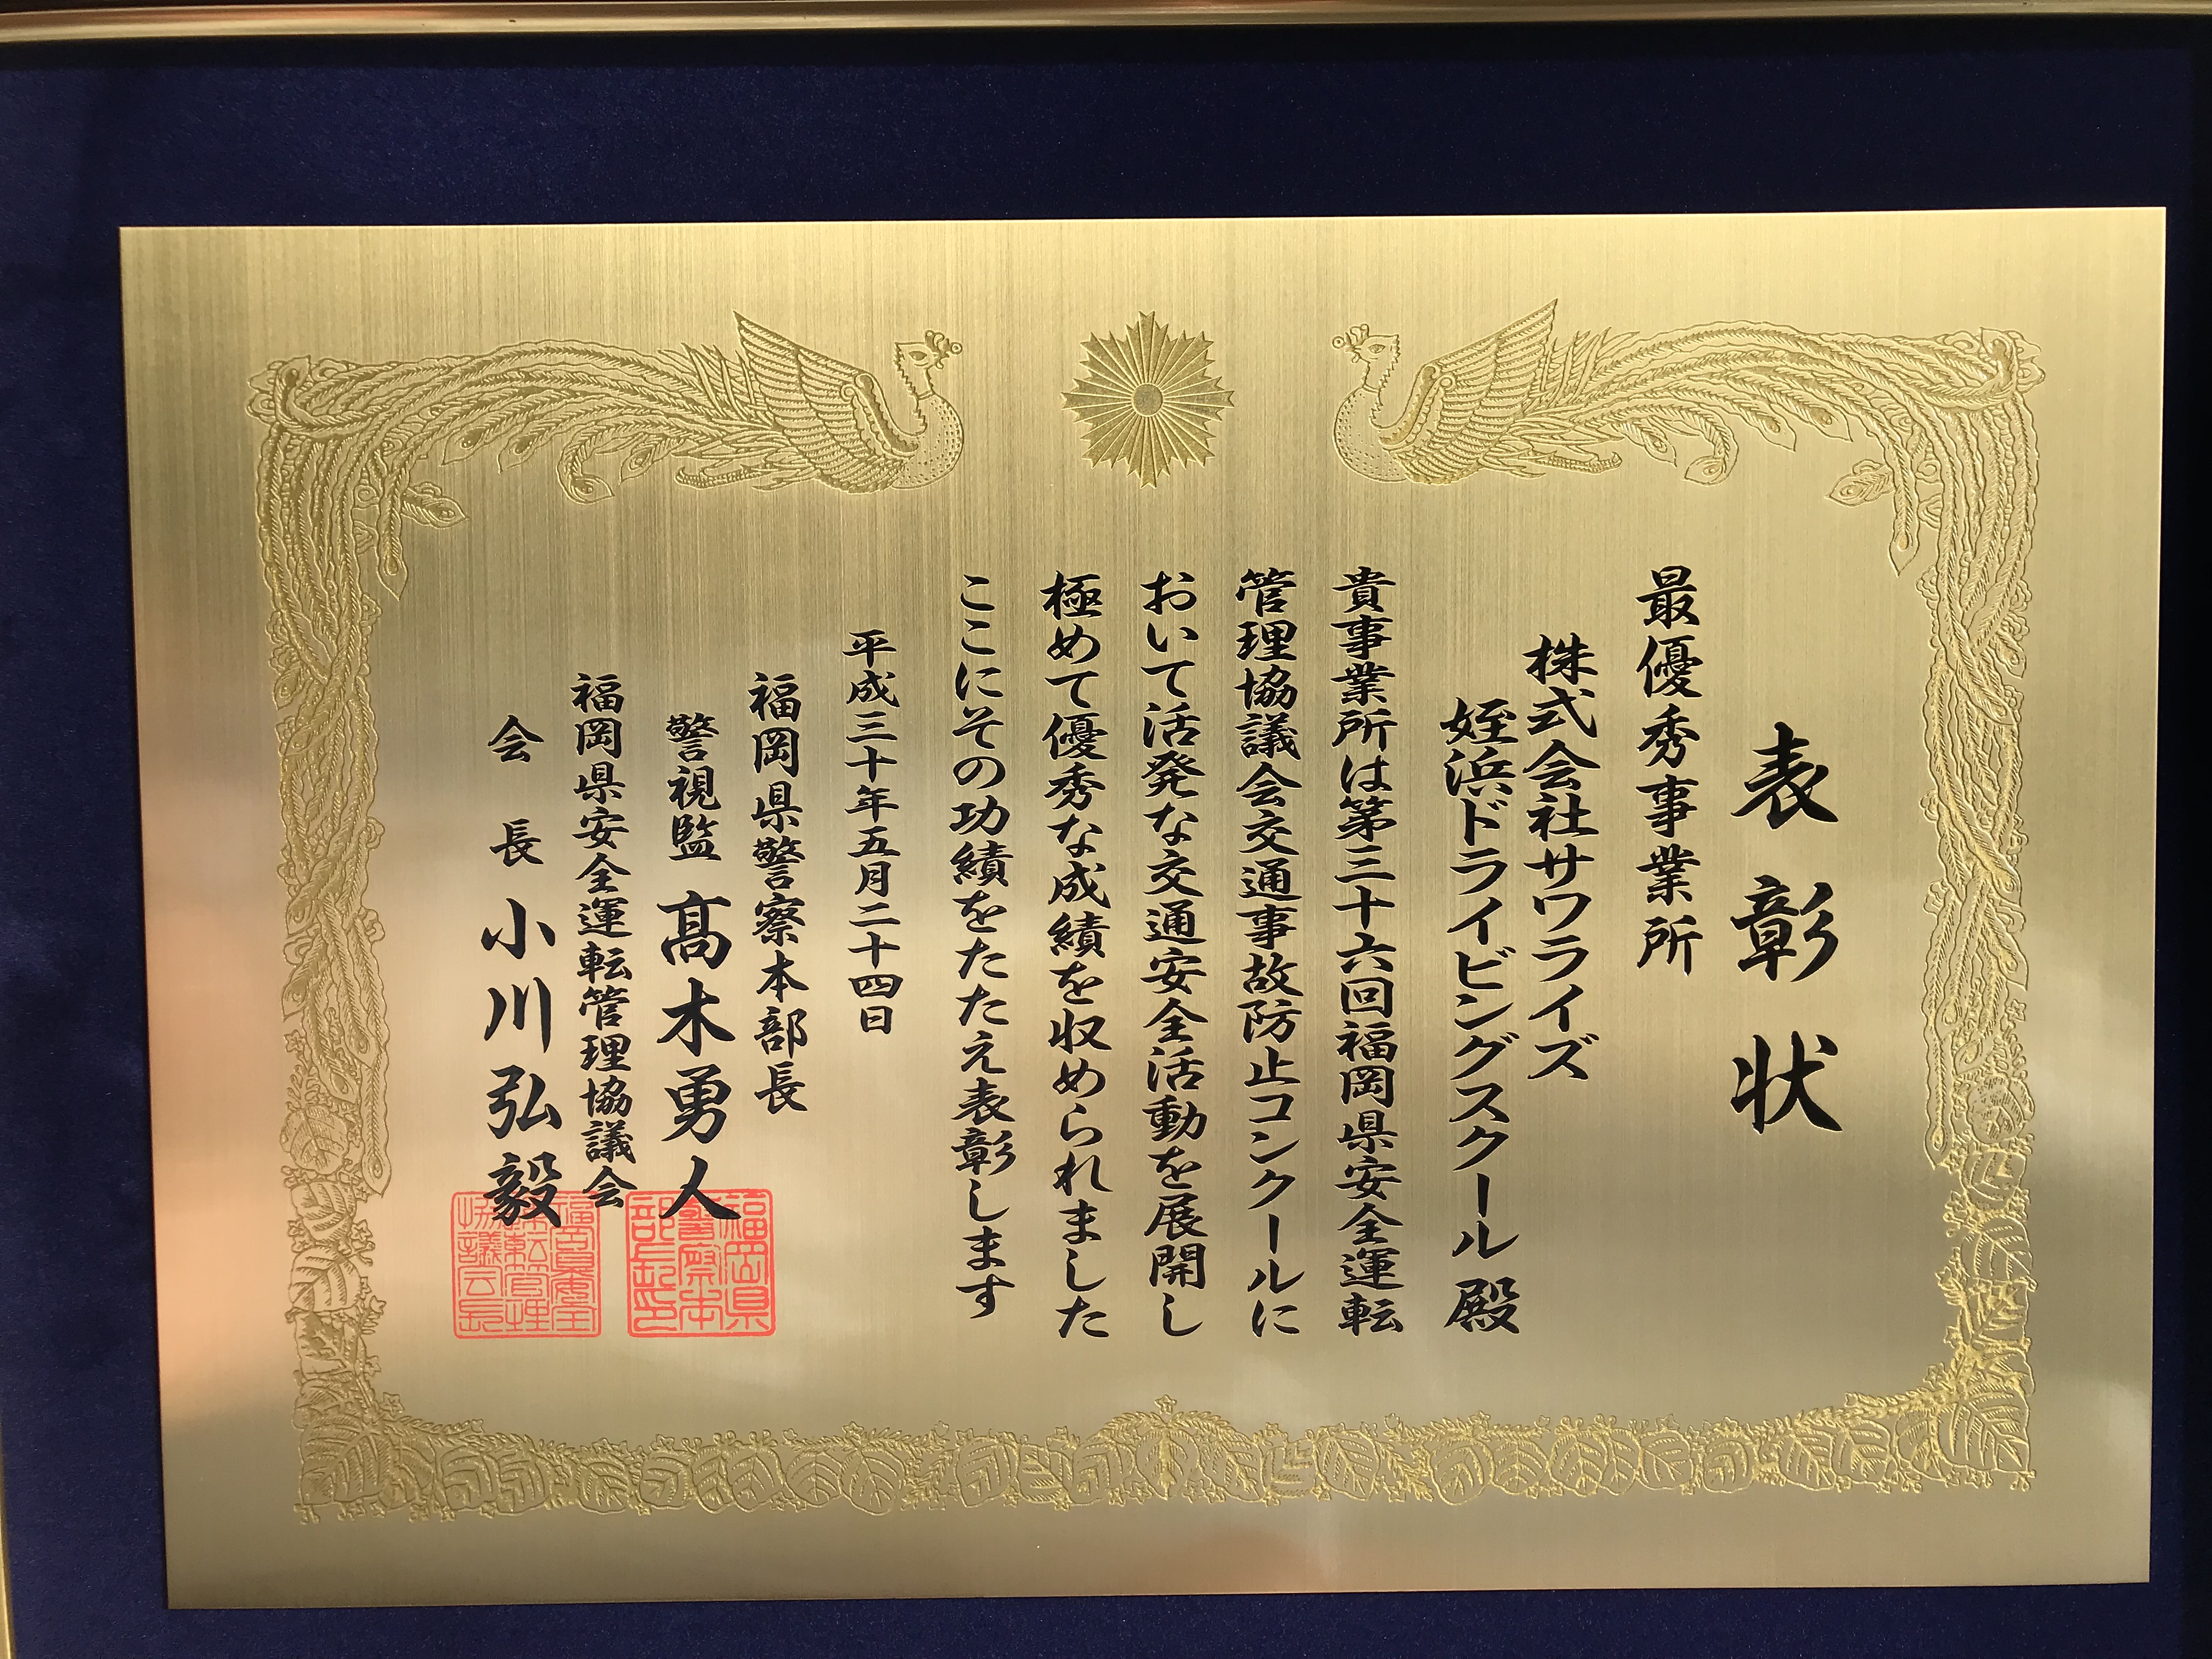 表彰状
最優秀事業所
株式会社サワライズ
姪浜ドライビングスクール 殿
貴事業所は第三十六回福岡県安全運転
管理協議会交通事故防止コンクールに
おいて活発な交通安全活動を展開し
極めて優秀な成績を収められました
ここにその功績をたたえ表彰します
平成三十年五月二十四日
福岡県警察本部長
警視監 髙木勇人
福岡県安全運転管理協議会
会長 小川弘毅
福岡県
警察本
部長印
福岡県安全
運転管理
協議会長